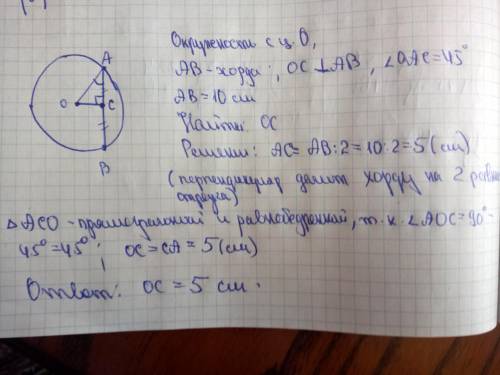 A
O
C
B
Окружность с ц. O,
AB - хорда, OC ⊥ AB, ∠OAC = 45°
AB = 10 см
Найти: OC
Решение: AC = AB : 2 = 10 : 2 = 5 (см)
(перпендикуляр делит хорду на 2 равн
отрезка)
△ ACO - прямоугольный и равнобедренный, т.к. ∠AOC = 90° -
45° = 45°; OC = CA = 5 (см)
Ответ: OC = 5 см.